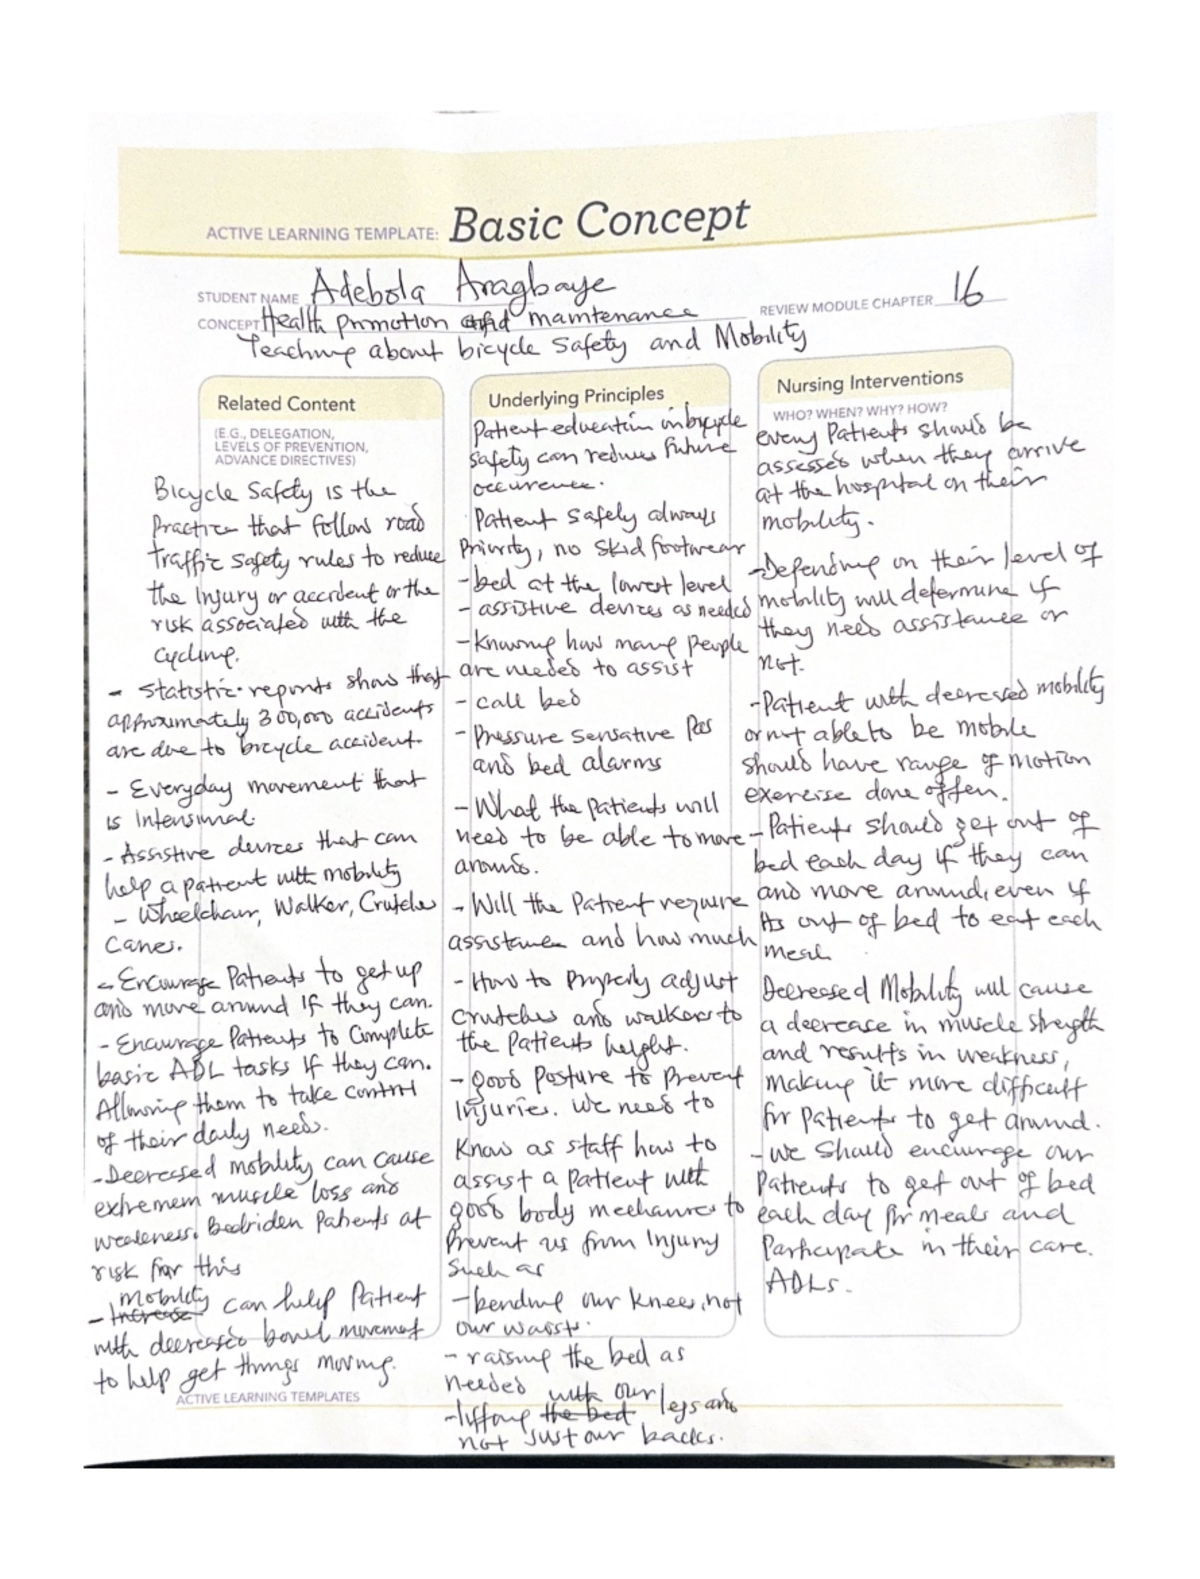 ACTIVE LEARNING TEMPLATE: Basic Concept
STUDENT NAME Adebola Aragbaye
REVIEW MODULE CHAPTER 16
CONCEPT Health promotion and maintenance
Teaching about bicycle Safety and Mobility
Related Content
(E.G., DELEGATION,
LEVELS OF PREVENTION,
ADVANCE DIRECTIVES)
Bicycle Safety is the
Practice that follow road
traffic safety rules to reduce
the Injury or accident or the
risk associated with the
Cycling.
- Statistic reports show that
approximately 300,000 accidents
are due to bicycle accident.
- Everyday movement that
is Intensional.
- Assistive devices that can
help a patient with mobility
- Wheelchair, Walker, Crutches
Canes.
- Encourage Patients to get up
and move around If they can.
- Encourage Patients to Complete
basic ADL tasks If they can.
Allowing them to take control
of their daily needs.
- Decreased mobility can cause
extremem muscle loss and
weakness. Bedriden Patients at
risk for this
mobility
- Increase can help Patient
with decreased bowel movement
to help get things moving.
Underlying Principles
Patient education in bicycle
safety can reduces future
occurence.
Patient Safely always
Priority, no Skid footwear
- bed at the lowest level
- assistive devices as needed
- Knowing how many People
are needed to assist
- call bed
- Pressure Sensative Pas
and bed alarms
- What the patients will
need to be able to move
around.
- Will the Patient require
assistance and how much
- How to Properly adjust
crutches and walkers to
the Patients height.
- good Posture to Prevent
Injuries. We need to
Know as staff how to
assist a Patient with
good body mechanics to
Prevent us from Injury
Such as
- bending our Knees, not
our waist.
- raising the bed as
needed
- lifting the bed with our legs and
not Just our backs.
Nursing Interventions
WHO? WHEN? WHY? HOW?
every Patients should be
assessed when they arrive
at the hospital on their
mobility.
- Depending on their level of
mobility will determine if
they need assistance or
not.
- Patient with decreased mobility
or not able to be mobile
should have range of motion
exercise done offen.
- Patients should get out of
bed each day if they can
and move around, even if
its out of bed to eat each
meal.
Decreased Mobility will cause
a decrease in muscle strength
and results in weakness,
making it more difficult
for patients to get around.
- We Should encourage our
Patients to get out of bed
each day for meals and
Participate in their care.
ADLs.
ACTIVE LEARNING TEMPLATES